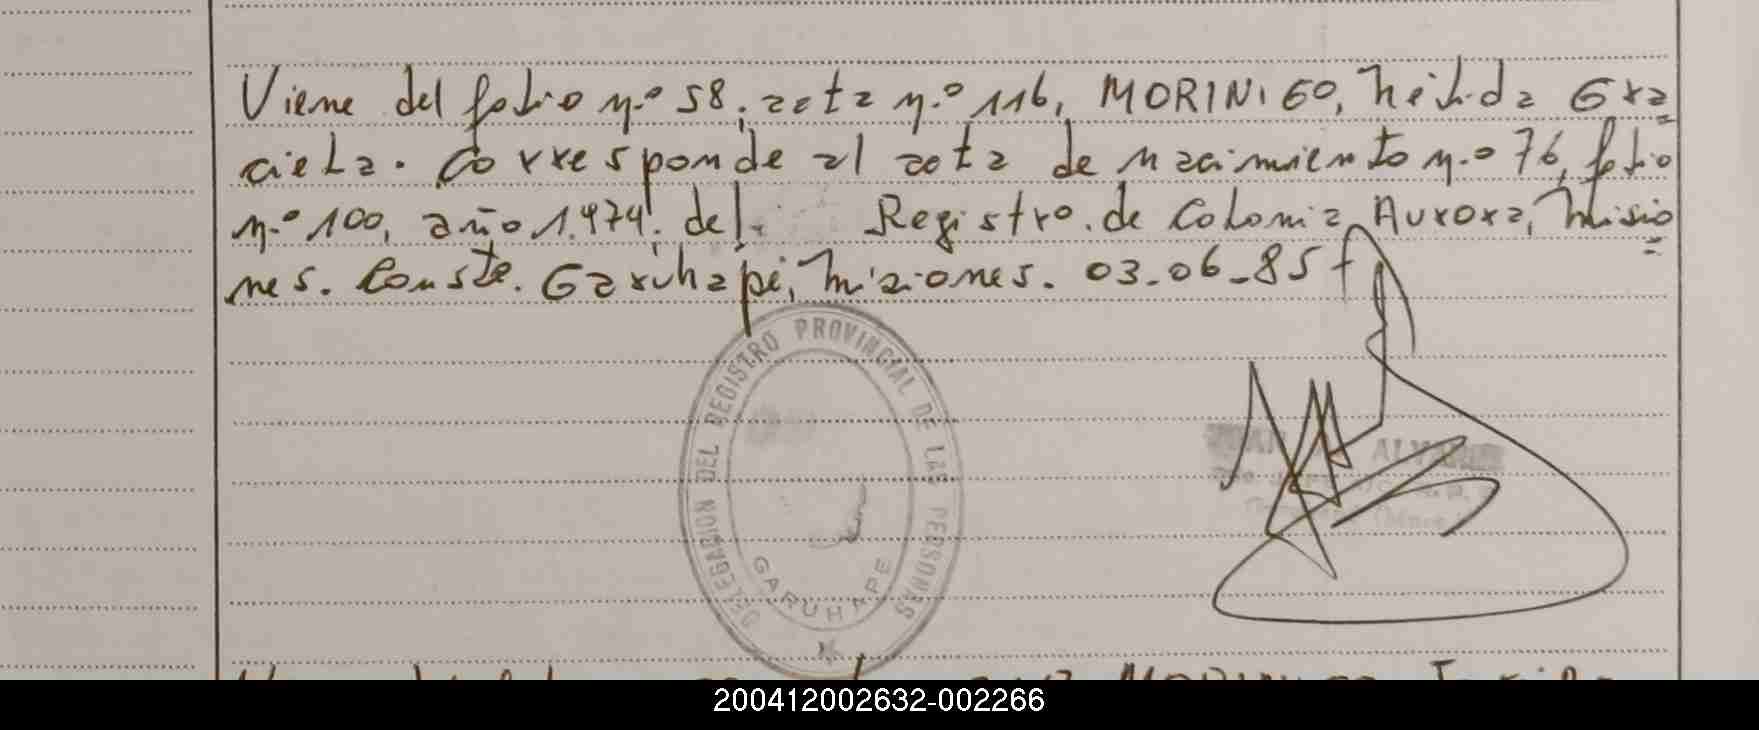 Viene del folio n.º 58, acta n.º 116, MORINIGO, Nélida Gra
ciela. Corresponde al acta de nacimiento n.º 76, folio
n.º 100, año 1.974, del Registro de Colonia Aurora, Misio
nes. Conste. Garuhapé, Misiones. 03-06-85
DELEGACION DEL REGISTRO PROVINCIAL DE LAS PERSONAS
GARUHAPE
200412002632-002266